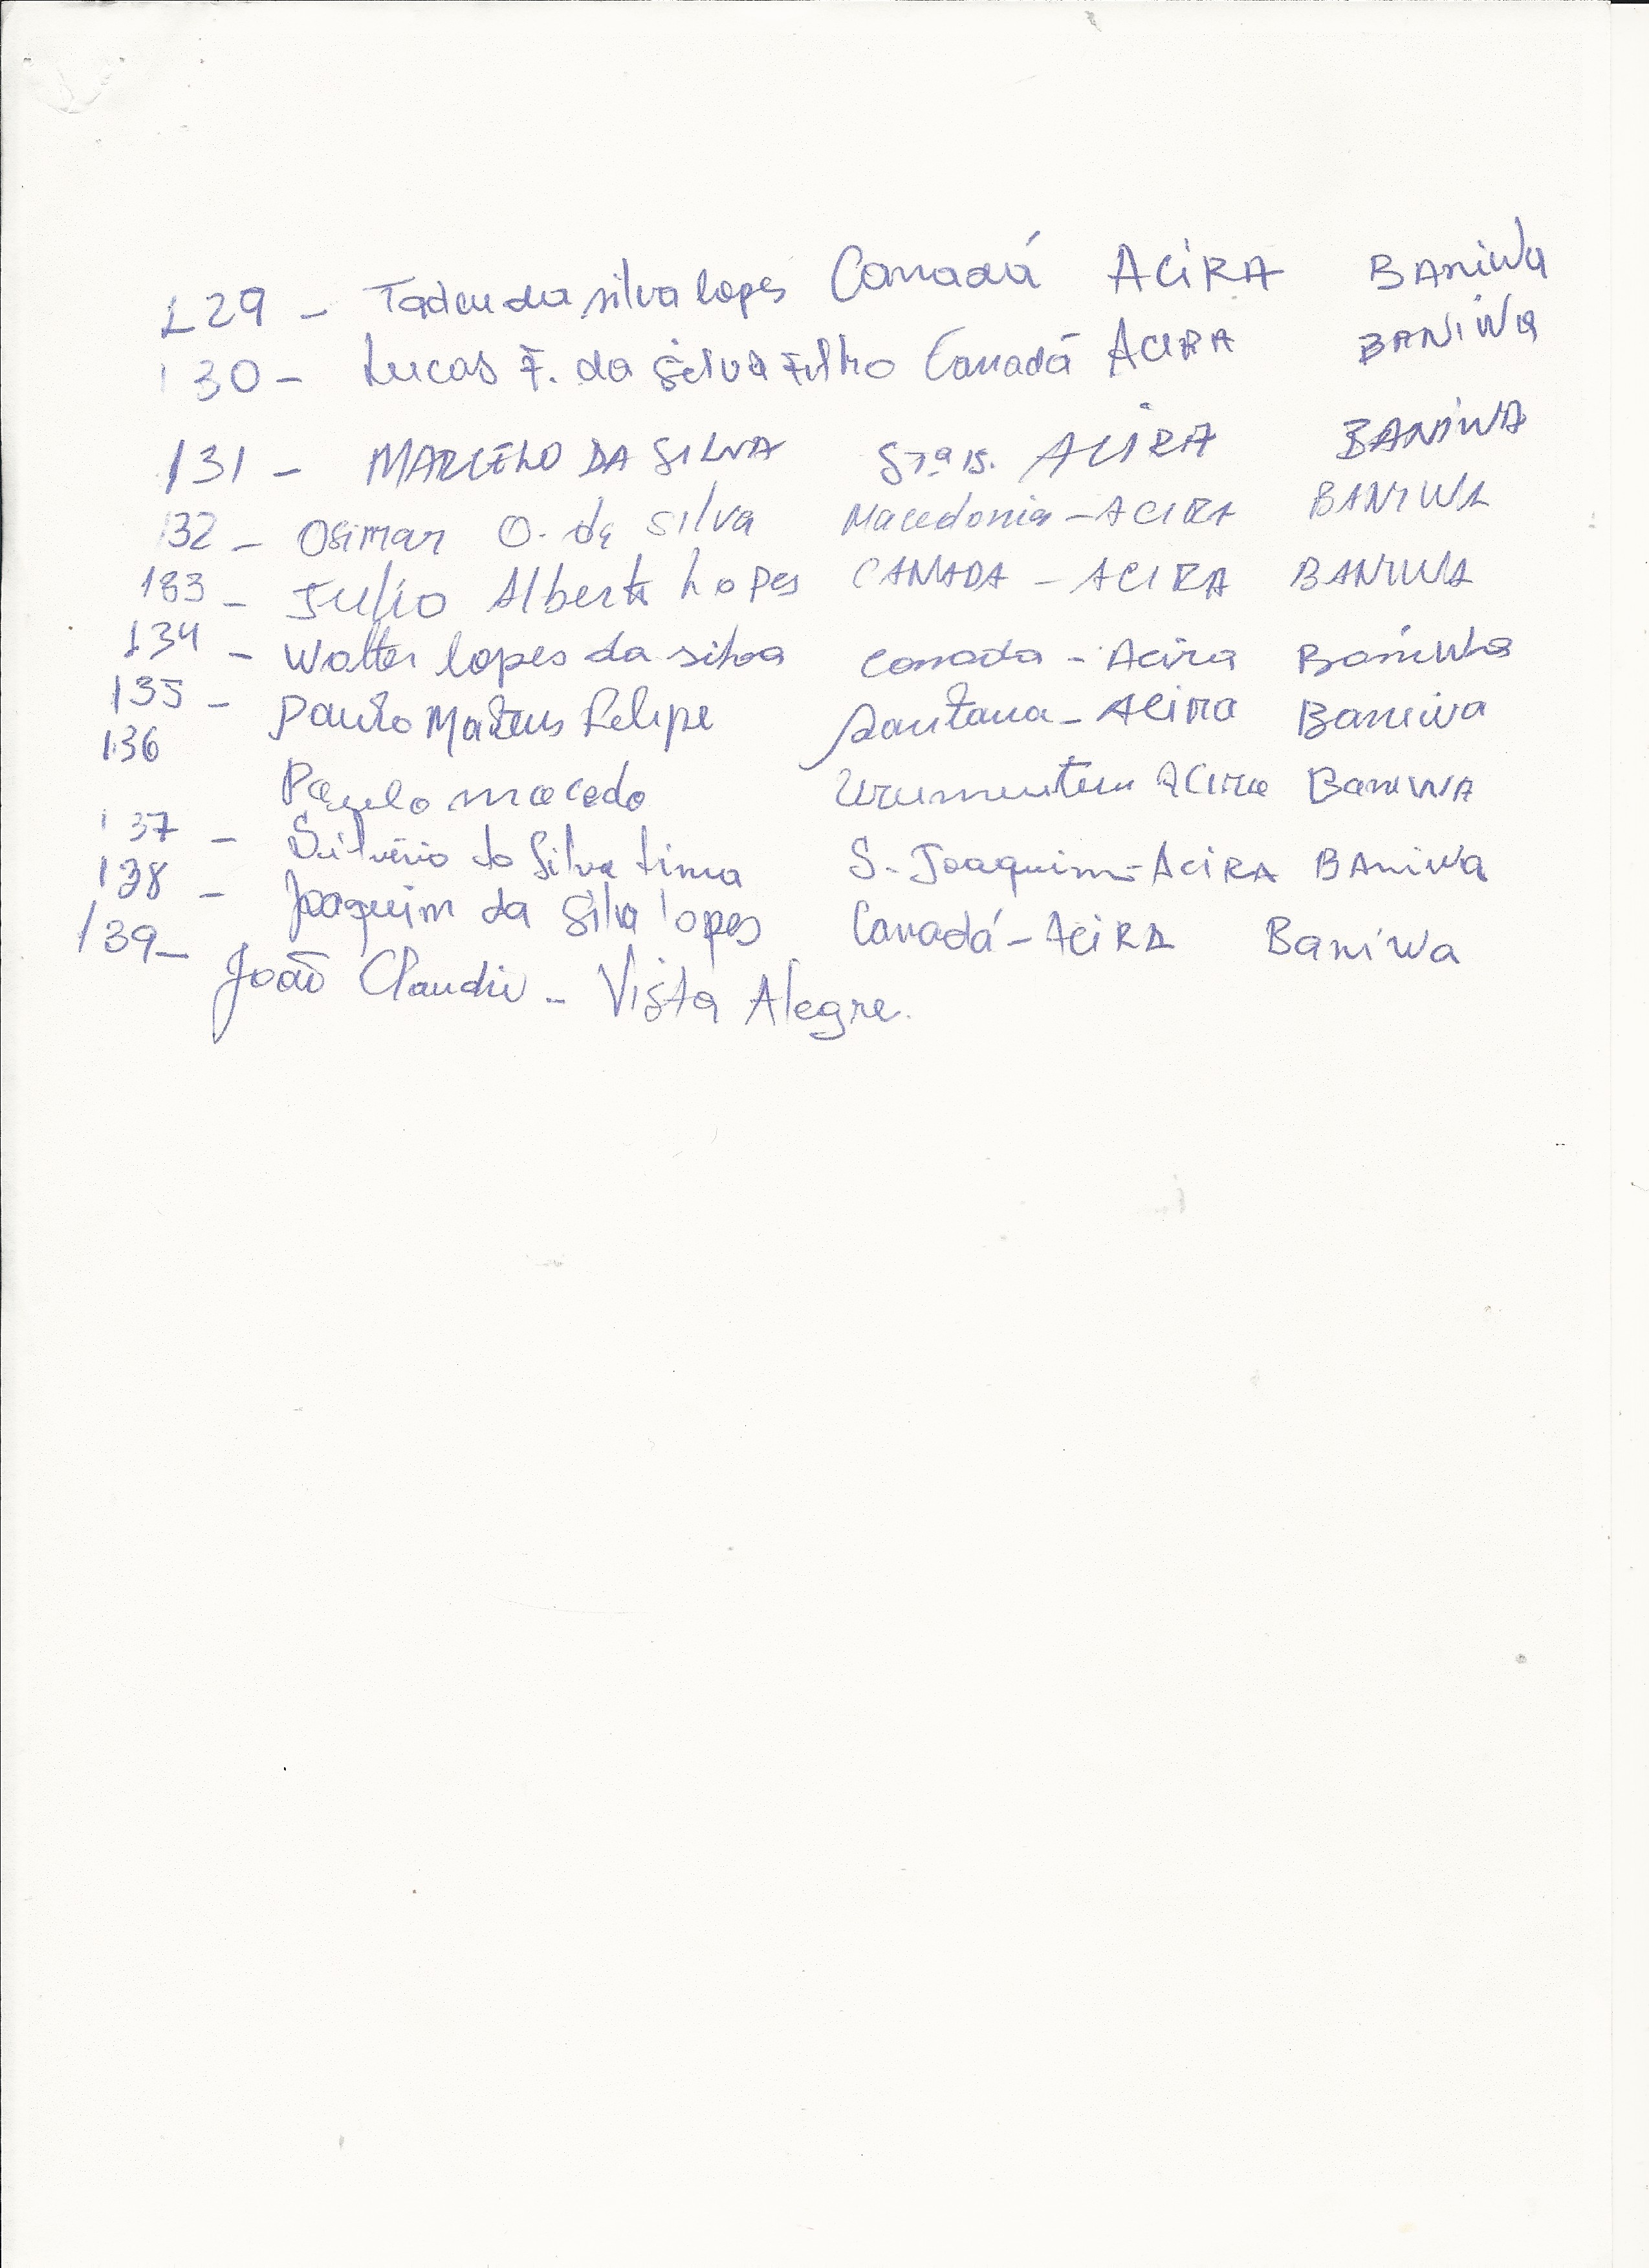 129 - Tadeu da silva lopes Canadá ACIRA BANIWA
130 - Lucas F. da Silva Filho Canadá ACIRA BANIWA
131 - MARCELO DA SILVA ACIRA BANIWA
132 - Osimar O. da Silva Macedonia - ACIRA BANIWA
133 - Julio Alberto Lopes CANADA - ACIRA BANIWA
134 - Walter lopes da silva canada - Acira Baniwa
135 - Paulo Mateus Felipe Santana - Acira Baniwa
136 Paulo macedo Acira BaniWA
137 - Silvério da Silva Lima S. Joaquim - ACIRA BANIWA
138 - Joaquim da Silva lopes Canadá - ACIRA Baniwa
139 - João Claudio - Vista Alegre.